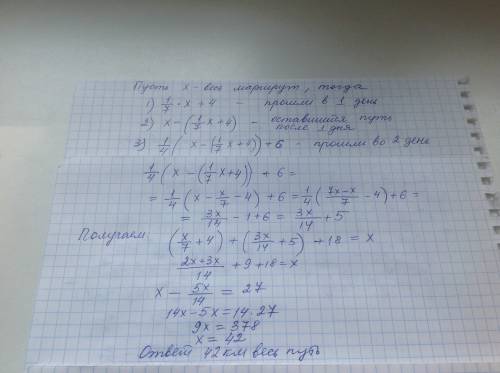 Пусть x - весь маршрут, тогда
1) 1/7 · x + 4 - прошли в 1 день
2) x - (1/7 x + 4) - оставшийся путь после 1 дня
3) 1/4 ( x - (1/7 x + 4)) + 6 - прошли во 2 день
1/4 ( x - (1/7 x + 4)) + 6 =
= 1/4 ( x - x/7 - 4) + 6 = 1/4 ( (7x - x)/7 - 4) + 6 =
= 3x/14 - 1 + 6 = 3x/14 + 5
Получаем (x/7 + 4) + (3x/14 + 5) + 18 = x
(2x + 3x)/14 + 9 + 18 = x
x - 5x/14 = 27
14x - 5x = 14 · 27
9x = 378
x = 42
Ответ 42 км весь путь